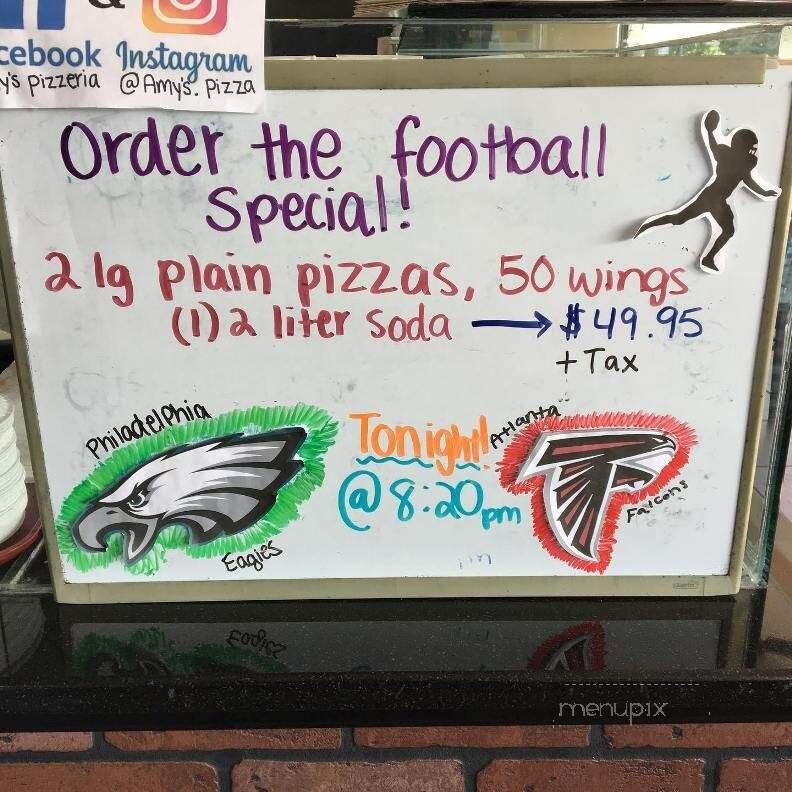 &
cebook Instagram
y's pizzeria @Amy's. Pizza
Order the football
special!
2 lg plain pizzas, 50 wings
(1) 2 liter soda → $49.95
+ Tax
Philadelphia
Eagles
Tonight!
@ 8:20pm
Atlanta
Falcons
menupix